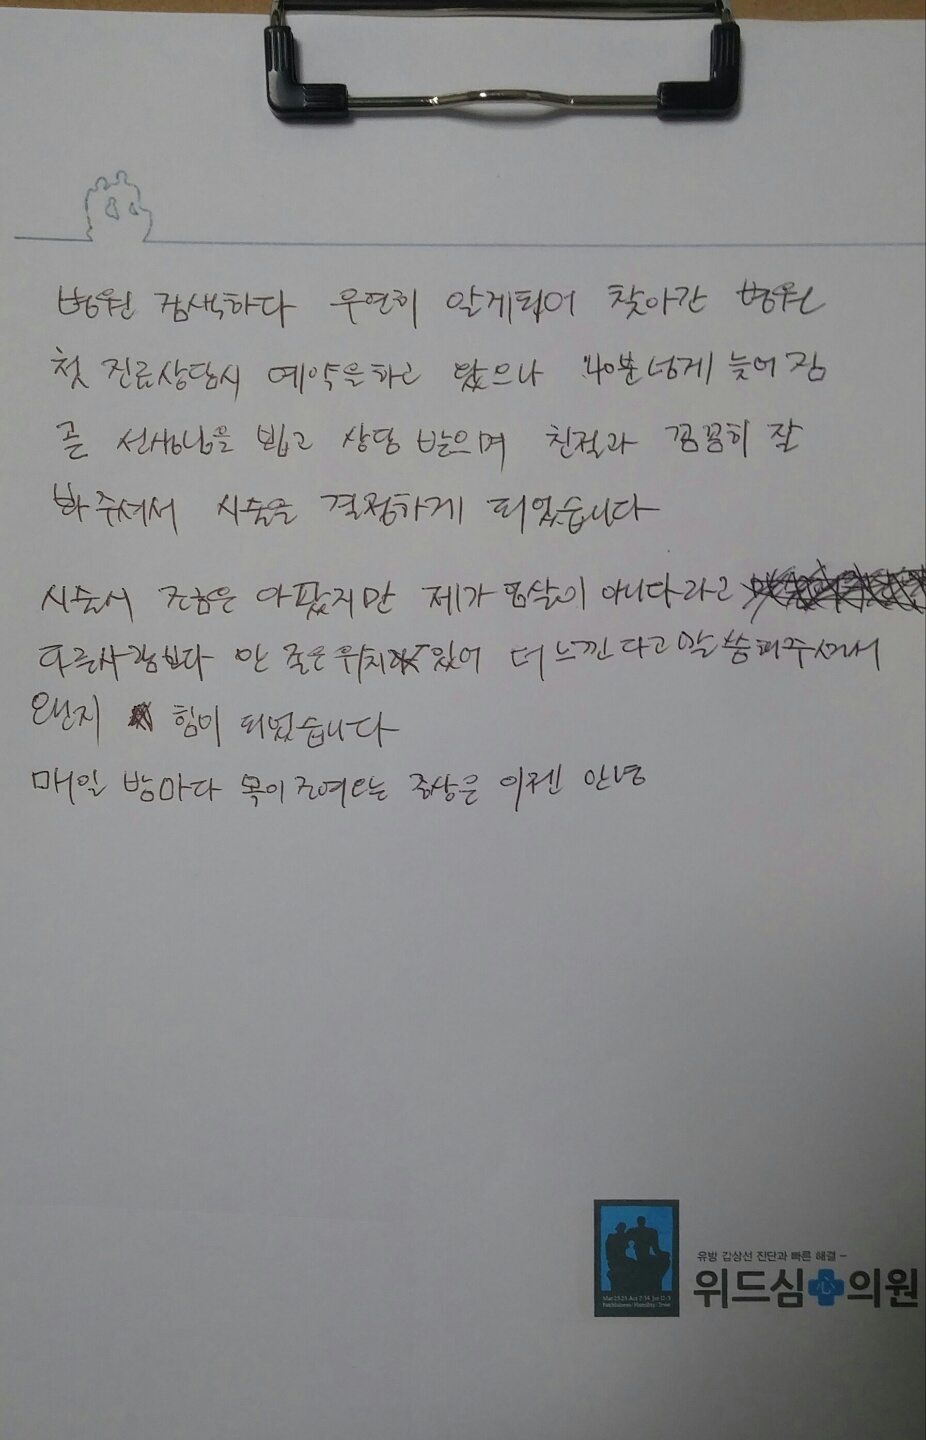 병원 검색하다 우연히 알게되어 찾아간 병원
첫 진료상담시 예약을하고 왔으나 40분넘게 늦어짐
곧 선생님을 뵙고 상담 받으며 친절과 꼼꼼히 잘
봐주셔서 시술을 결정하게 되었습니다
시술시 조금은 아팠지만 제가 엄살이 아니다라고
다른사람보다 안 좋은위치 있어 더 느낀다고말씀해주셔서
왠지 힘이 되었습니다
매일 밤마다 목이 조여오는 증상은 이젠 안녕
유방 갑상선 진단과 빠른 해결 –
위드심 의원
Faithfulness/Humility/Trust